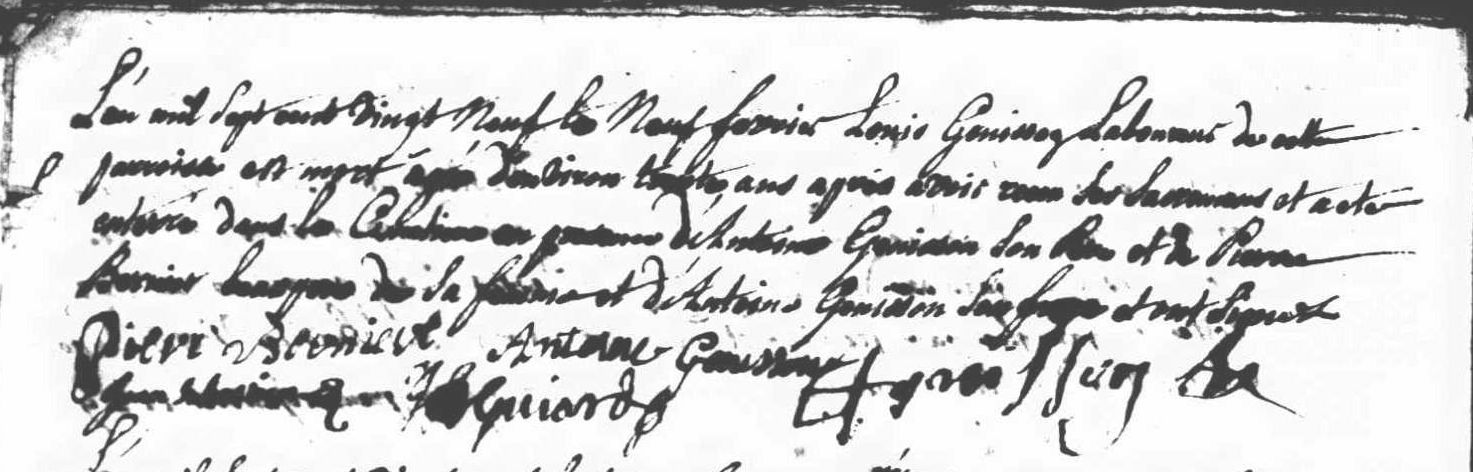 L'an mil sept cent vingt Neuf le Neuf fevrier Louis Genisson Laboureur de cette
parroisse est mort agé d'environ trente ans apres avoir receu ses sacremens et a eté
enterré dans le Cimetiere en presence d'Antoine Genisson son Pere et de Pierre
Bernier beaupere de sa femme et d'Antoine Genisson son frere et ont signés
Pierre Bernier Antoine Genisson
Guiard